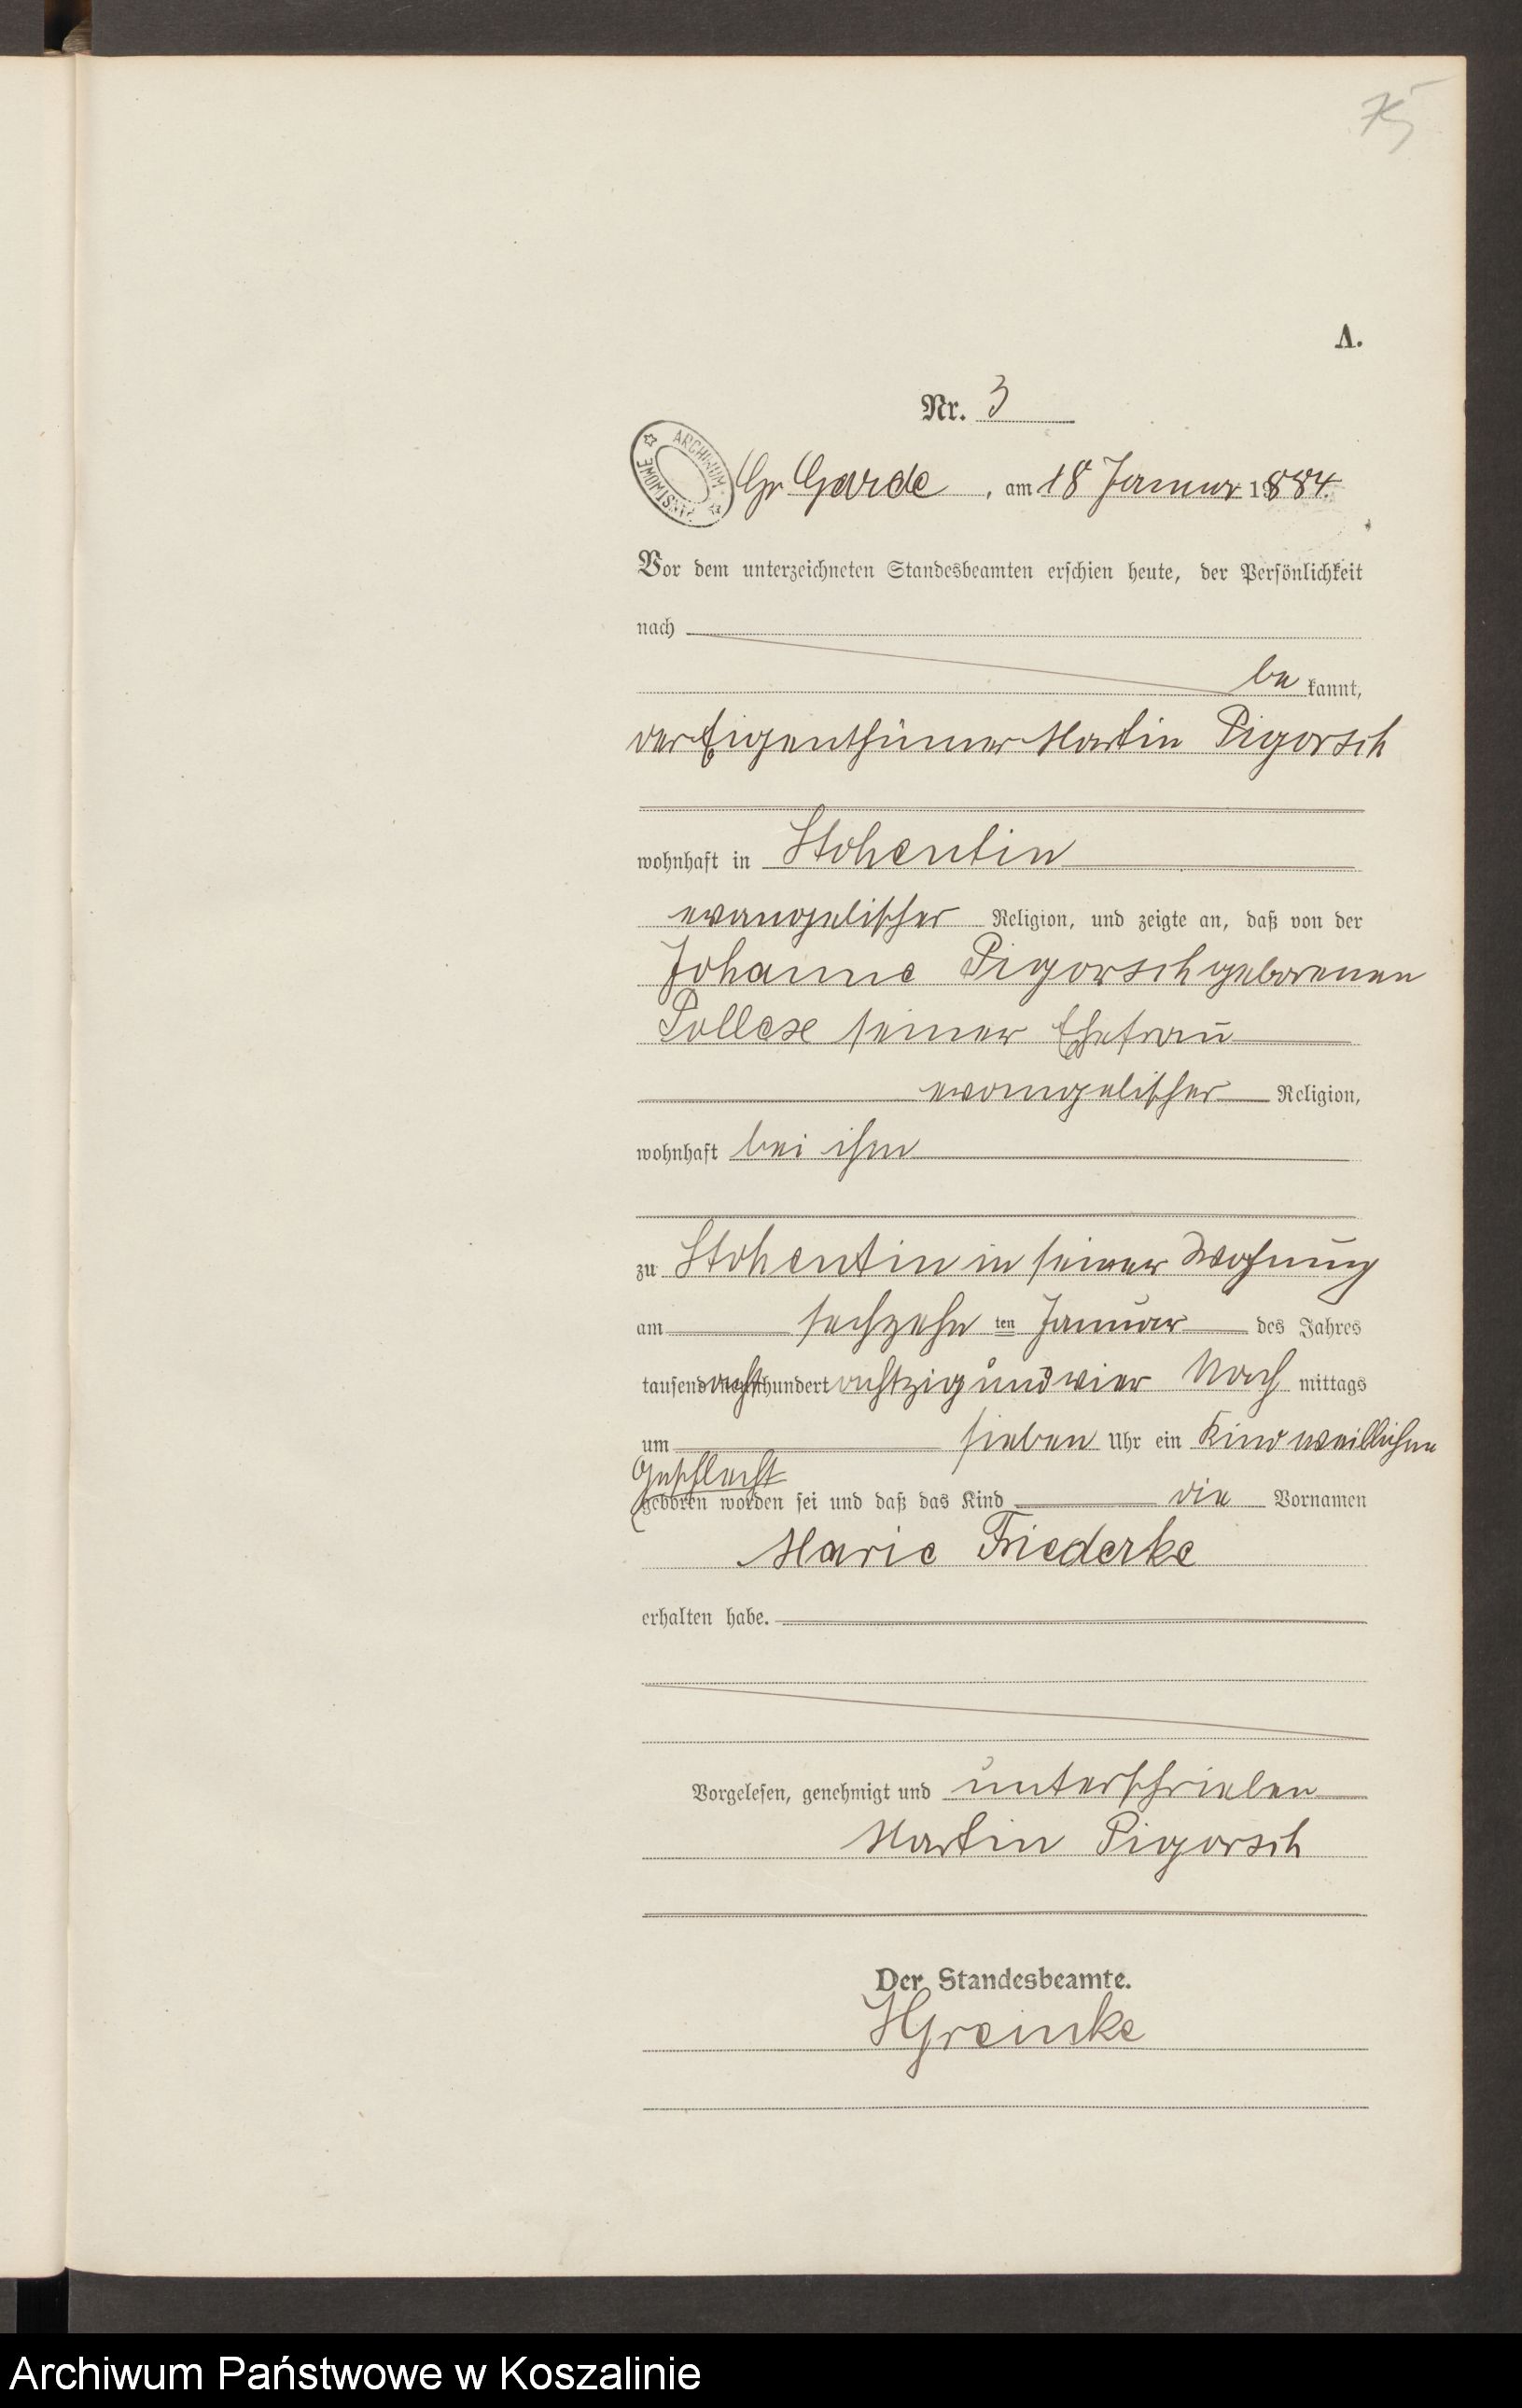 75
A.
Nr. 3
ARCHIWUM PAŃSTWOWE
Gr Garde, am 18 Januar 1884.
Vor dem unterzeichneten Standesbeamten erschien heute, der Persönlichkeit
nach
be kannt,
der Eigenthümer Martin Pigorsch
wohnhaft in Stohentin
evangelischer Religion, und zeigte an, daß von der
Johanne Pigorsch geborenen
Pollexe seiner Ehefrau
evangelischer Religion,
wohnhaft bei ihm
zu Stohentin in seiner Wohnung
am sechzehn ten Januar des Jahres
tausend acht hundert achtzig und vier Nach mittags
um sieben Uhr ein Kind weiblichen
Geschlecht
geboren worden sei und daß das Kind die Vornamen
Marie Friederke
erhalten habe.
Vorgelesen, genehmigt und unterschrieben
Martin Pigorsch
Der Standesbeamte.
HGreinke
Archiwum Państwowe w Koszalinie